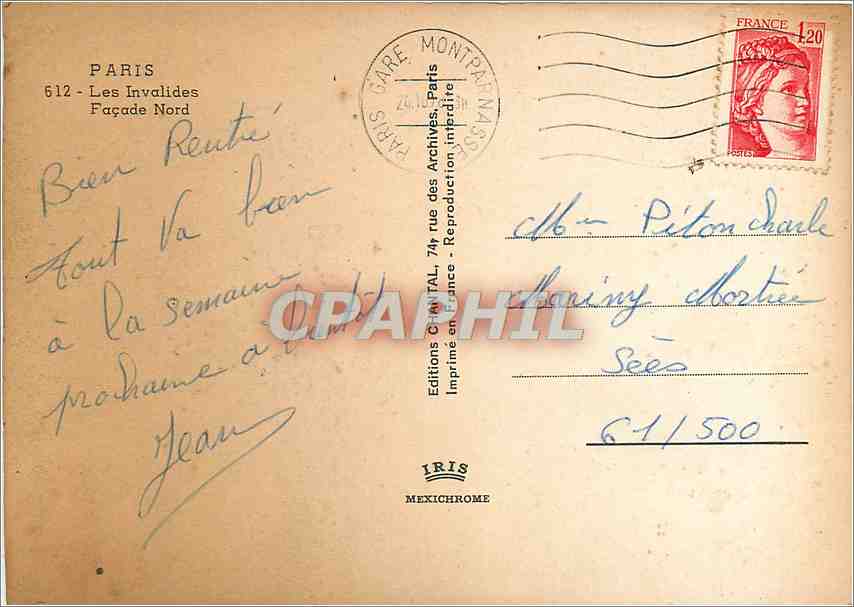 PARIS
612 - Les Invalides
Façade Nord
Bien Rentré
Tout va bien
à la semaine
prochaine a Bientôt
Jean
PARIS GARE MONTPARNASSE
FRANCE 1,20
POSTES
Editions CHANTAL, 74, rue des Archives, Paris
Imprimé en France - Reproduction interdite
IRIS
MEXICHROME
Piton Charle
Mortrée
Sées
61/500
CPAPHIL